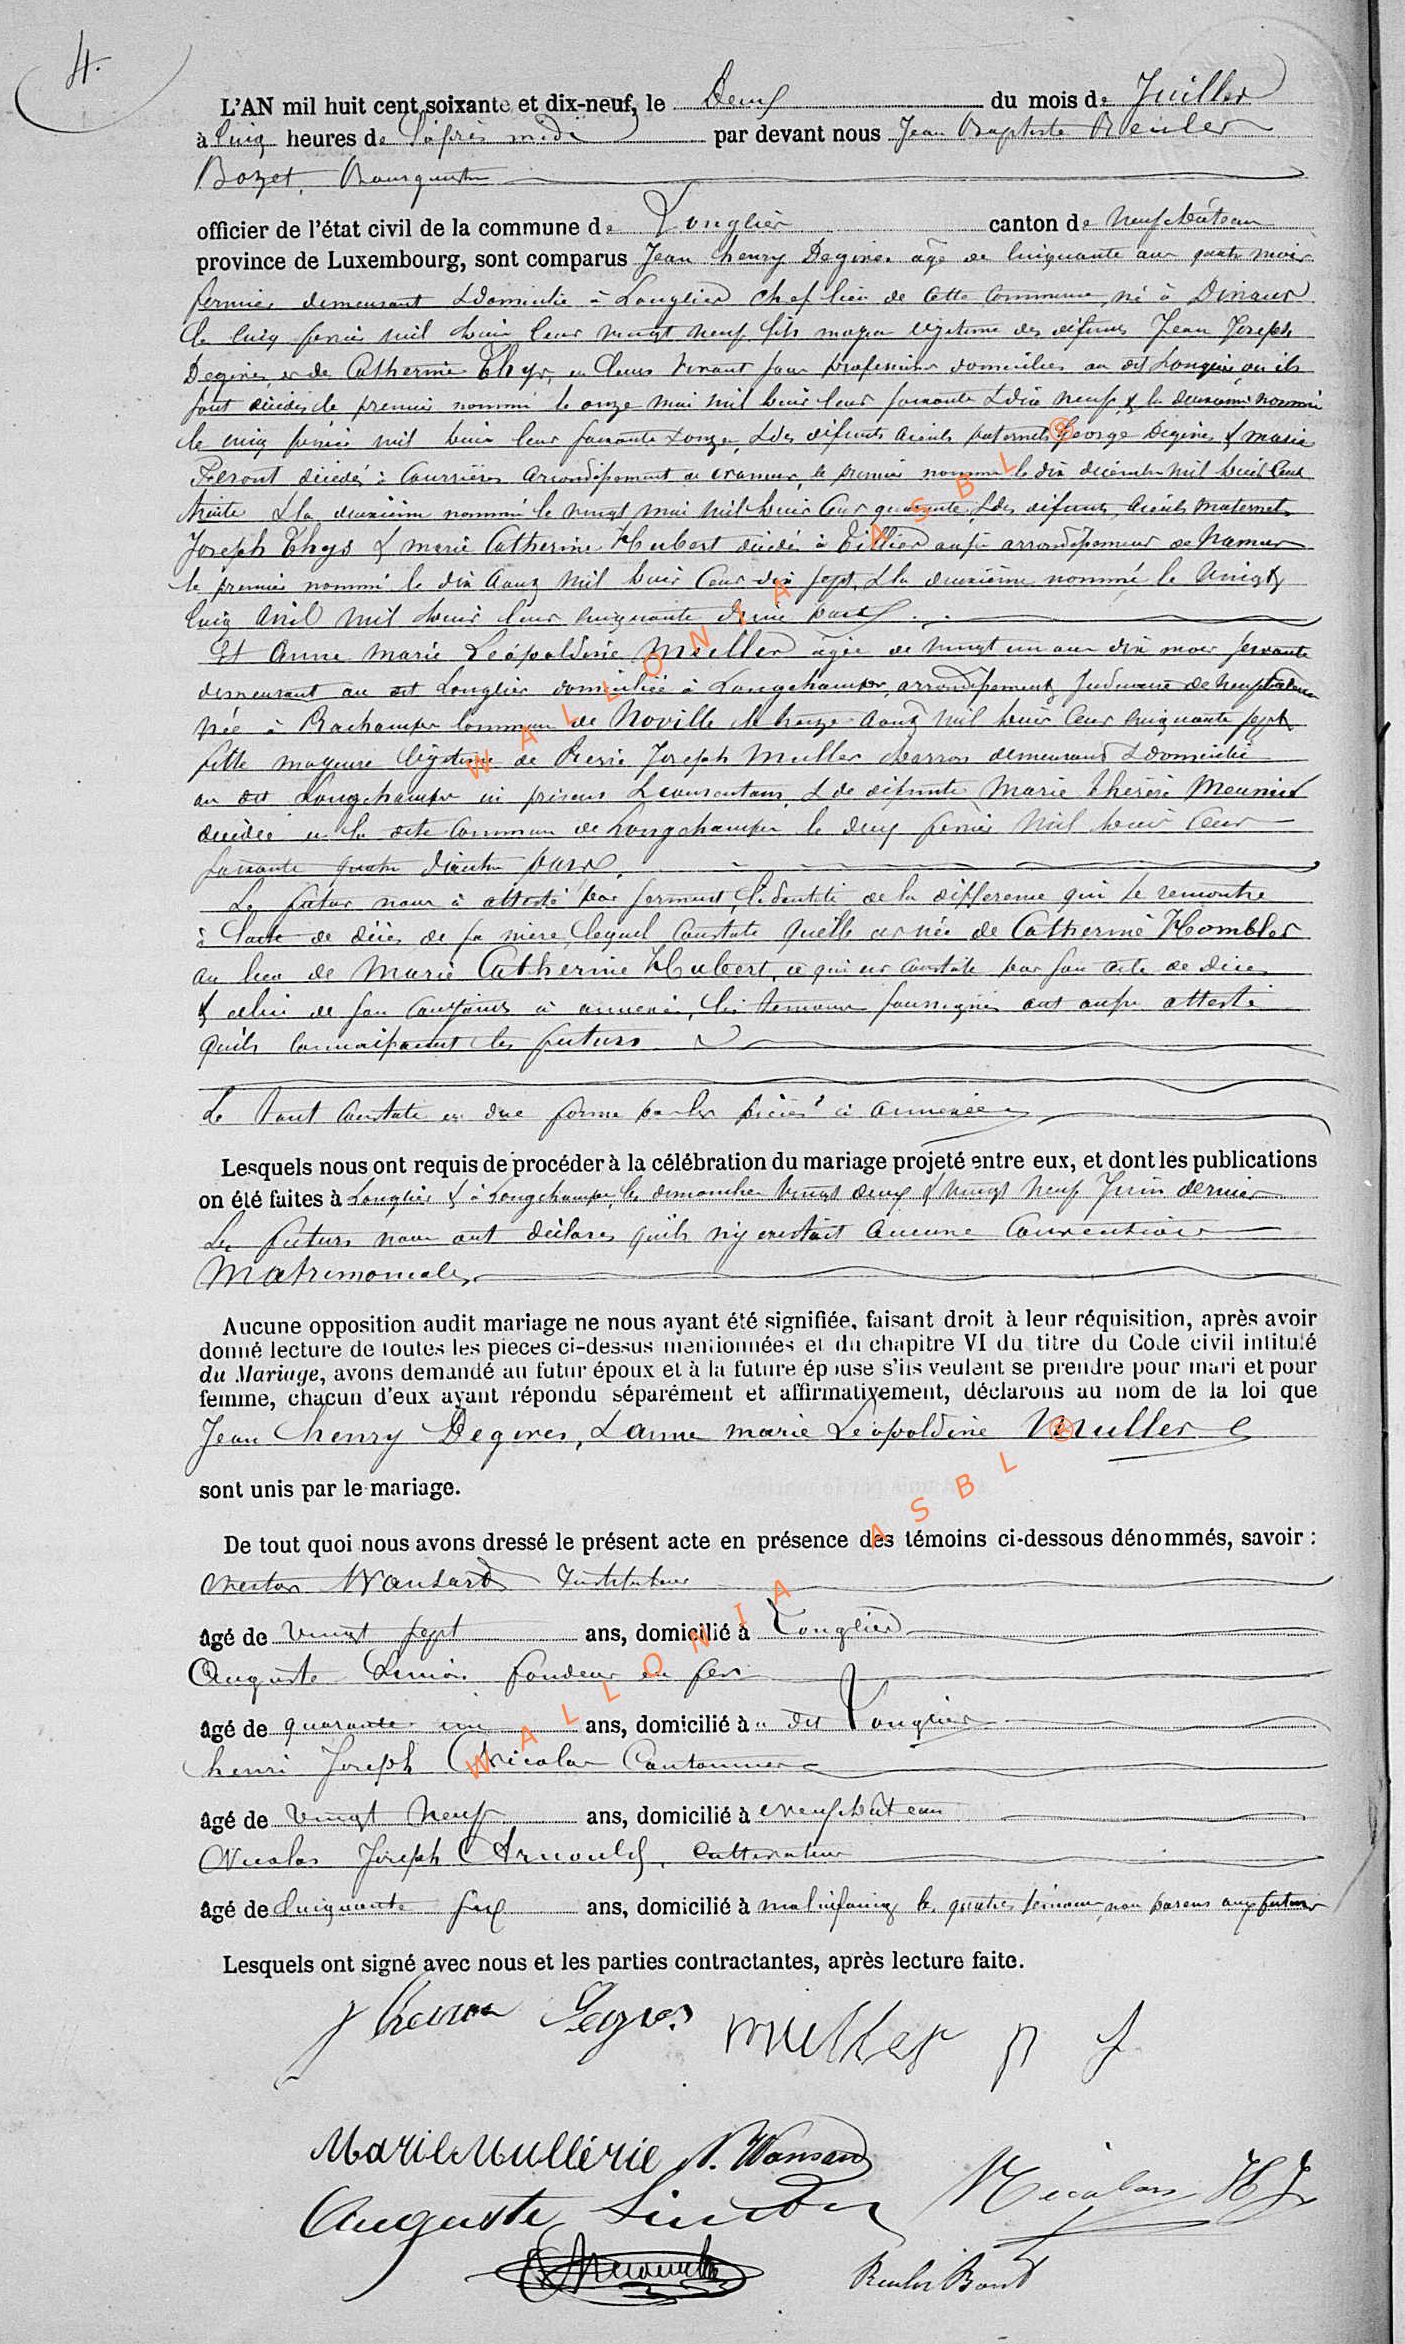 4.
L'AN mil huit cent soixante et dix-neuf, le Deux du mois de Juillet
à Cinq heures de l'après midi par devant nous Jean Baptiste Reuler
Bozet, Bourguestre
officier de l'état civil de la commune de Longlier canton de Neufchâteau
province de Luxembourg, sont comparus Jean henry Degives âgé de Cinquante ans quatre mois
fermier demeurant & domicilié à Longlier chef lieu de Cette Commune, né à
le Cinq février mil huit Cent vingt neuf fils majeur légitime des défunts Jean Joseph
Degives & de Catherine Thys, en leurs vivant sans profession domiciliés au dit Longlier où ils
sont décédés le premier nommé le onze mai mil huit Cent soixante & dix neuf & la deuxième nommé
le cinq février mil huit Cent soixante & onze, & des défunts aïeuls paternels George Degives & marie
décédés à Courrière arrondissement de namur, le premier nommé le dix décembre mil huit Cent
trente & la deuxième nommé le vingt mai mil huit Cent quarante, & des défunts aïeuls maternels
Joseph Thys & marie Catherine Hubert décédés à Tillier aussi arrondissement de Namur
le premier nommé le dix Aout mil huit Cent dix sept, & la deuxième nommé, le Vingt
Cinq Avril mil huit Cent cinquante d'une part
Et Anne Marie Léopoldine Muller âgée de vingt un ans dix mois servante
demeurant au dit Longlier domiciliée à Longchamps, arrondissement Judiciaire de neufchâteau
née à Rachamps Commune de Noville le treize Aout mil huit Cent cinquante sept
fille majeure légitime de Pierre Joseph Muller charron demeurant & domicilié
au dit Longchamps ici présent & consentant, & de défunte Marie thérèse Meunier
décédée en la dite Commune de Longchamps le deux février mil huit Cent
soixante quatre d'autre part.
Le futur nous à attesté par serment, l'identité de la différence qui se rencontre
à l'acte de décès de sa mère, lequel Constate qu'elle est née de Catherine Hombles
au lieu de Marie Catherine Hubert, ce qui est constaté par son acte de décès
& celui de son conjoint ci annexé, les témoins soussignés ont aussi attesté
qu'ils connaissaient les futurs
Le tout constaté en due forme par les pièces ci annexées
Lesquels nous ont requis de procéder à la célébration du mariage projeté entre eux, et dont les publications
on été faites à Longlier & à Longchamps, les dimanches vingt deux & vingt neuf Juin dernier
Les futurs nous ont déclarés qu'ils n'y existait aucune Convention
Matrimoniale,
Aucune opposition audit mariage ne nous ayant été signifiée, faisant droit à leur réquisition, après avoir
donné lecture de toutes les pièces ci-dessus mentionnées et du chapitre VI du titre du Code civil intitulé
du Mariage, avons demandé au futur époux et à la future épouse s'ils veulent se prendre pour mari et pour
femme, chacun d'eux ayant répondu séparément et affirmativement, déclarons au nom de la loi que
Jean henry Degives, & anne marie Léopoldine Muller
sont unis par le mariage.
De tout quoi nous avons dressé le présent acte en présence des témoins ci-dessous dénommés, savoir :
Nestor Wansard Instituteur
âgé de vingt sept ans, domicilié à Longlier
Auguste Simon fondeur en fer
âgé de quarante un ans, domicilié à u dit Longlier
henri Joseph Nicolas Cantonnier
âgé de vingt neuf ans, domicilié à Neufchâteau
Nicolas Joseph Arnould, Cultivateur
âgé de Cinquante six ans, domicilié à malinfaing les quatres témoins, non parens aux futurs
Lesquels ont signé avec nous et les parties contractantes, après lecture faite.
J henri Degives muller p J
Marie Mullérie N. Wansard
Auguste Simon Nicolas H J
Arnould Reuler Bozet
WALLONIA ASBL ®
WALLONIA ASBL ®